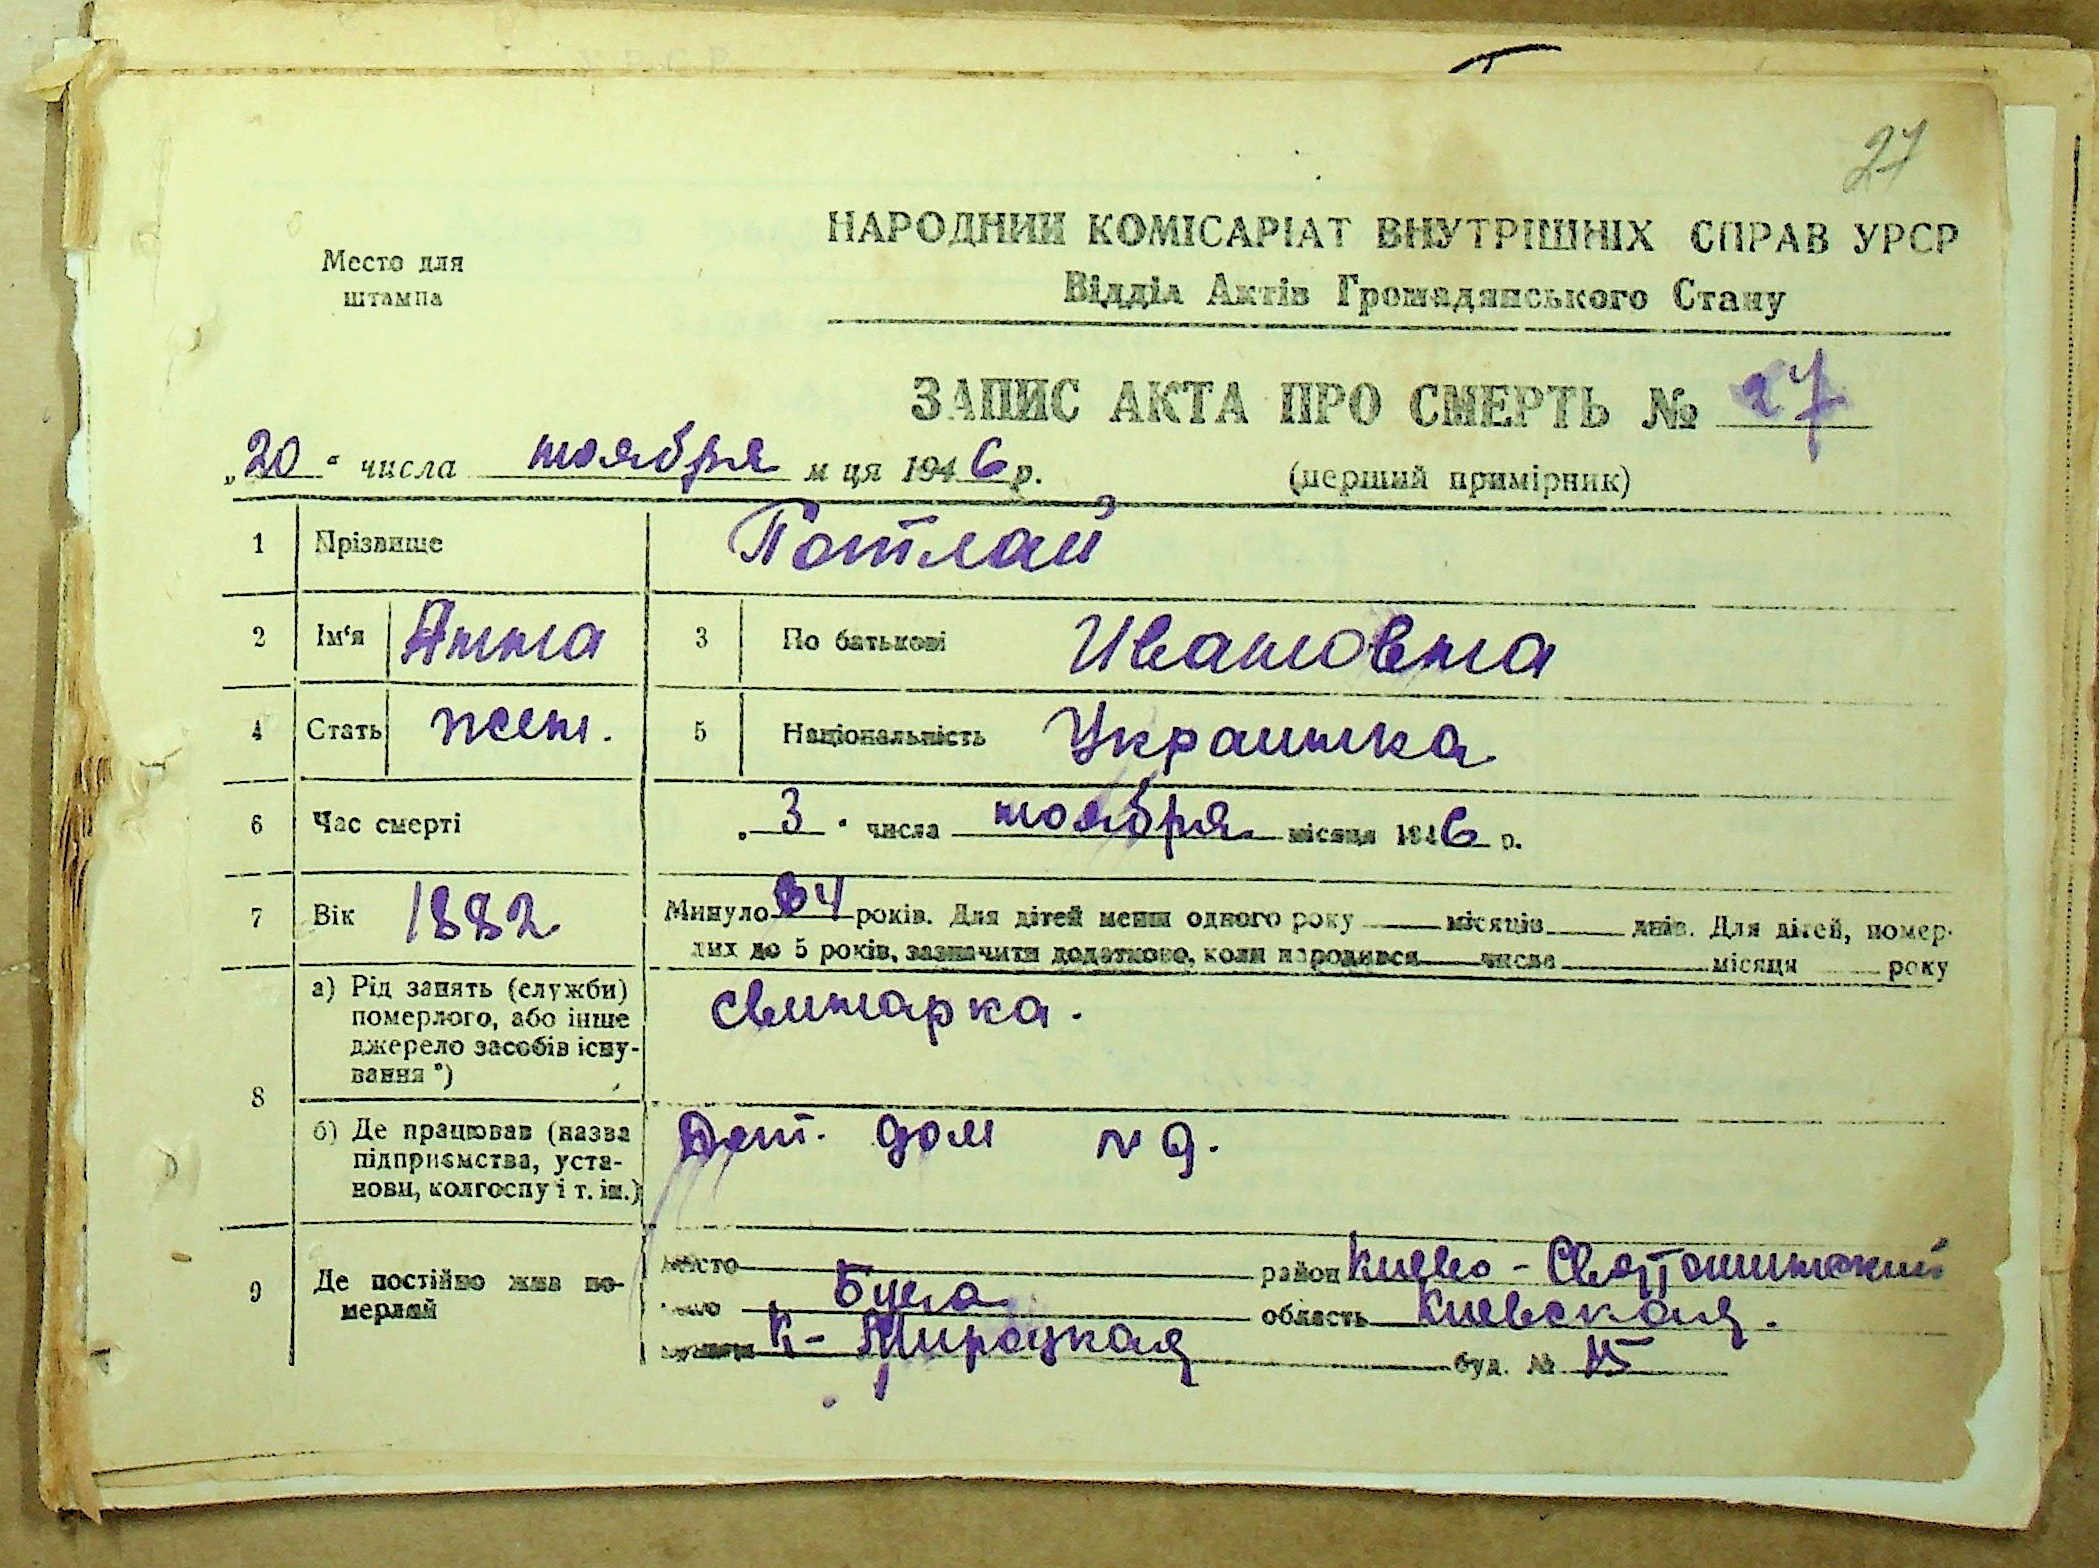 27
Место для
штампа
НАРОДНИЙ КОМІСАРІАТ ВНУТРІШНІХ СПРАВ УРСР
Відділ Актів Громадянського Стану
ЗАПИС АКТА ПРО СМЕРТЬ № 27
„20“ числа ноября м ця 1946 р.
(перший примірник)
1 Прізвище Потлай
2 Ім‘я Анна 3 По батькові Ивановна
4 Стать жен. 5 Національність Украинка
6 Час смерті „3“ числа ноября місяця 1946 р.
7 Вік 1882 Минуло 64 років. Для дітей менш одного року місяців днів. Для дітей, помер-
лих до 5 років, зазначити додатково, коли народився числа місяця року
8 а) Рід занять (служби)
померлого, або інше
джерело засобів існу-
вання *)
свинарка.
б) Де працював (назва
підприємства, уста-
нови, колгоспу і т. ін.)
Дет. дом N 9.
9 Де постійно жив по-
мерлий
місто район Киево-Святошинский
Буча область Киевская.
К-Мироцкая буд. № 15